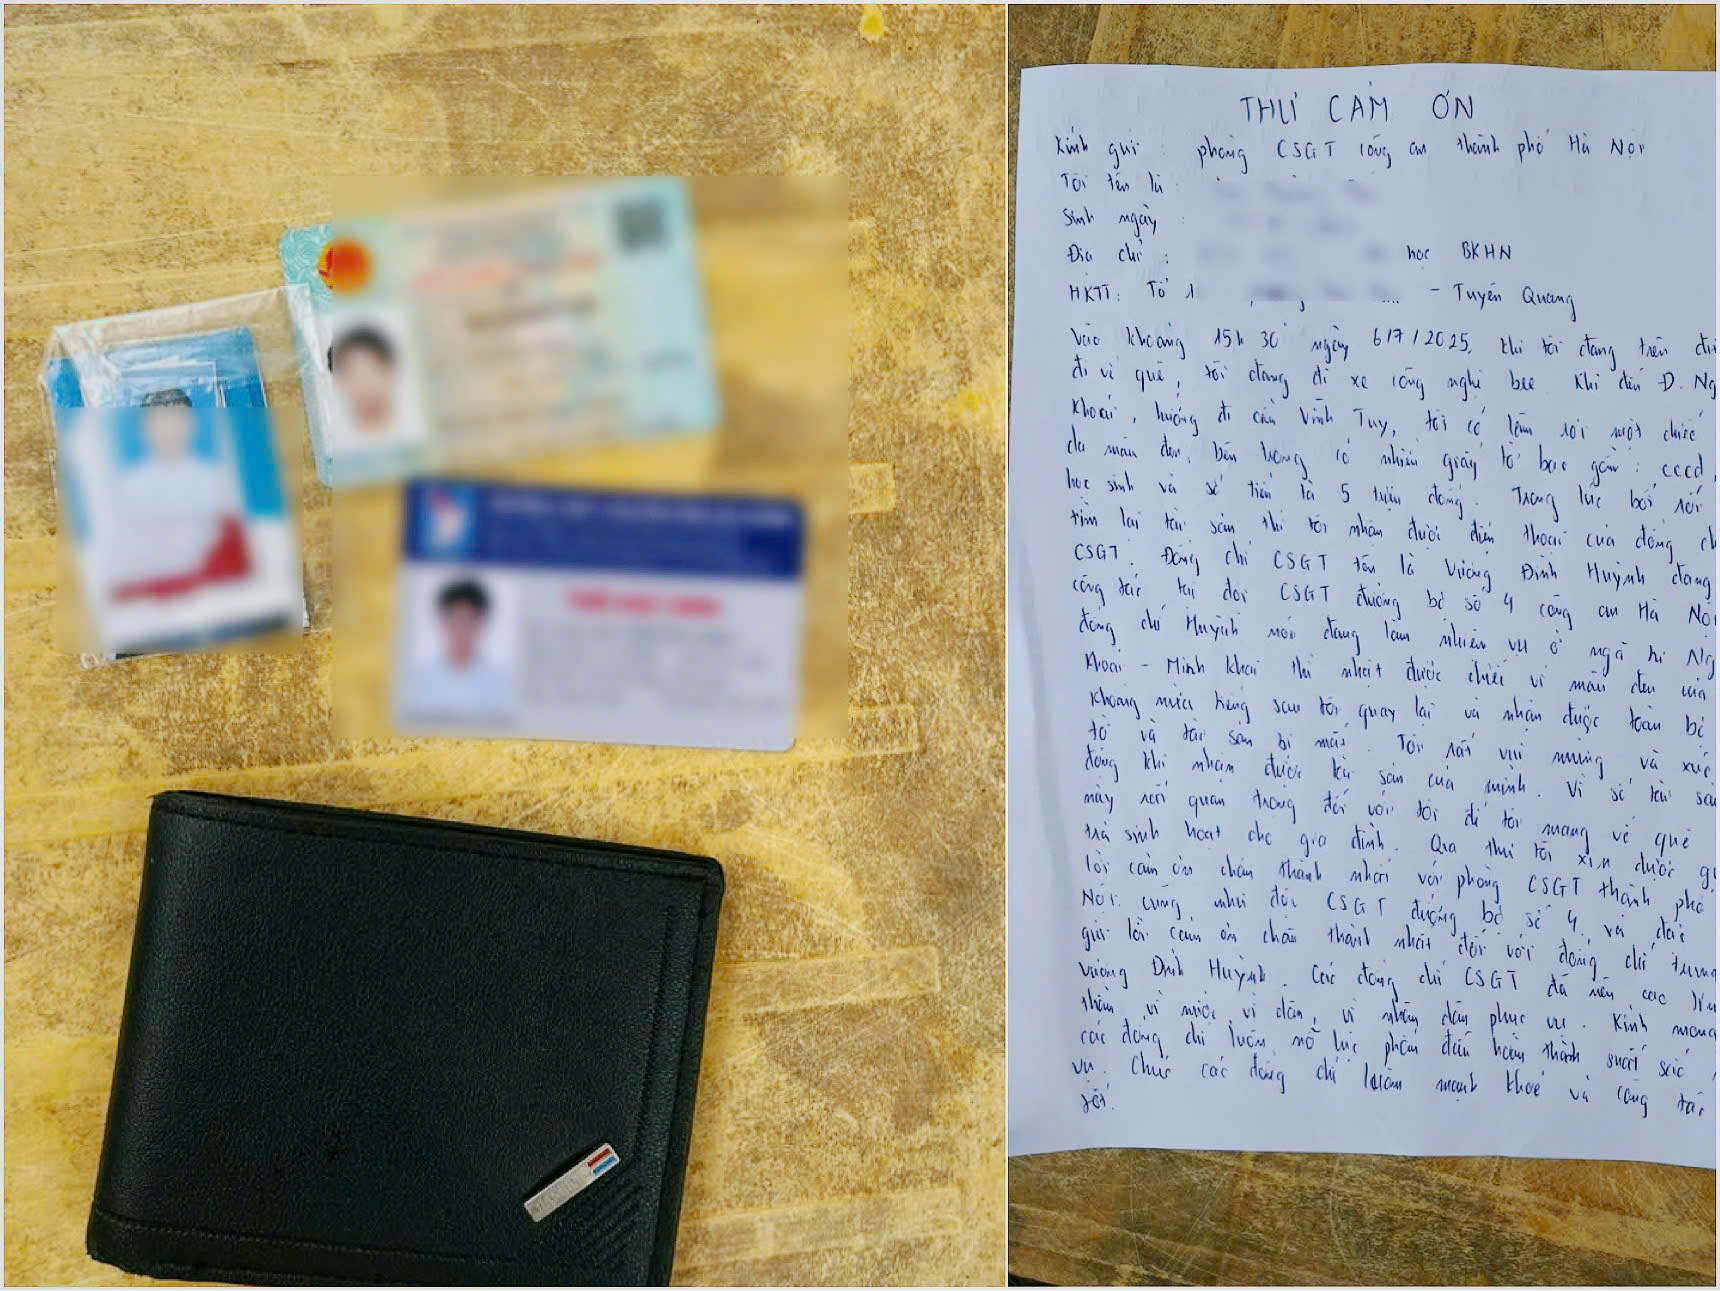 THƯ CẢM ƠN
Kính gửi : phòng CSGT công an thành phố Hà Nội
Tôi tên là :
Sinh ngày :
Địa chỉ : học BKHN
HKTT: Tổ 1 - Tuyên Quang
Vào khoảng 15h 30 ngày 6/7/2025, khi tôi đang trên đư
đi về quê, tôi đang đi xe công nghệ bee. Khi đến Đ. Ng
Khoái, hướng đi cầu Vĩnh Tuy, tôi có làm rơi một chiếc
da màu đen, bên trong có nhiều giấy tờ bao gồm : cccd,
học sinh và số tiền là 5 triệu đồng. Trong lúc bối rối
tìm lại tài sản thì tôi nhận được điện thoại của đồng ch
CSGT. Đồng chí CSGT tên là Vương Đình Huỳnh đang
công tác tại đội CSGT đường bộ số 4 công an Hà Nội
đồng chí Huỳnh nói đang làm nhiệm vụ ở ngã tư Ng
Khoái - Minh Khai thì nhặt được chiếc ví màu đen của
Không nửa tiếng sau tôi quay lại và nhận được toàn bộ
tờ và tài sản bị mất. Tôi rất vui mừng và xúc
động khi nhận được tài sản của mình. Vì số tài sả
này rất quan trọng đối với tôi để tôi mang về quê
trả sinh hoạt cho gia đình. Qua thư tôi xin được gử
lời cảm ơn chân thành nhất với phòng CSGT thành phố
Nội cũng như đội CSGT đường bộ số 4 và đặc
gửi lời cảm ơn chân thành nhất đối với đồng chí trung
Vương Đình Huỳnh. Các đồng chí CSGT đã nêu cao tin
thần vì nước vì dân, vì nhân dân phục vụ. Kính mong
các đồng chí luôn nỗ lực phấn đấu hoàn thành suất sắc
vụ. Chúc các đồng chí luôn mạnh khoẻ và công tác
tốt.